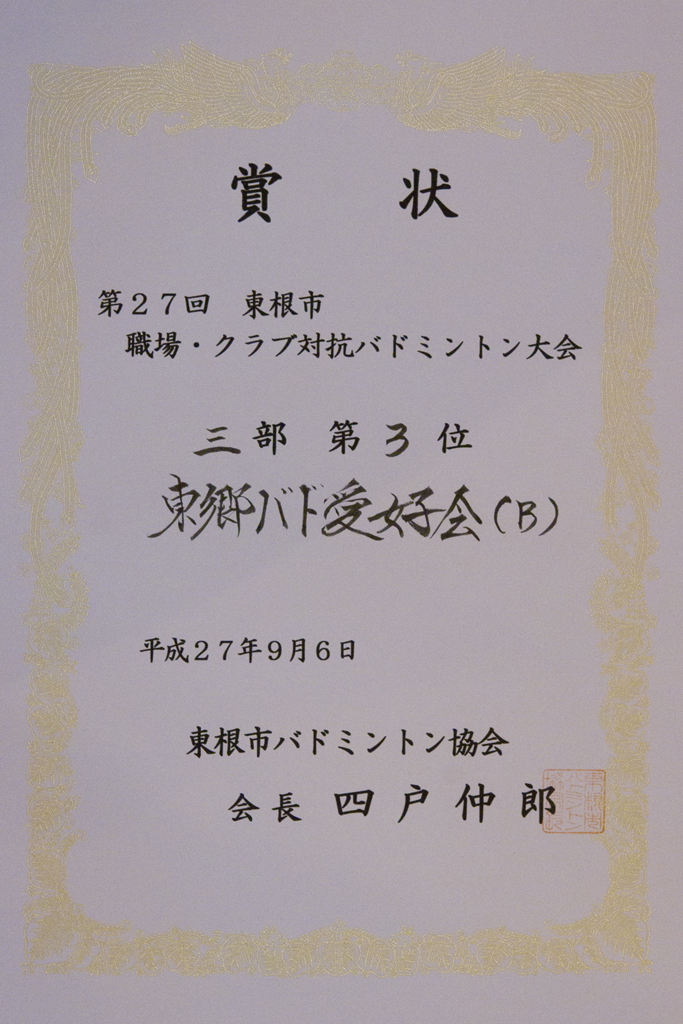 賞 状
第27回 東根市
職場・クラブ対抗バドミントン大会
三部 第3位
東郷バド愛好会(B)
平成27年9月6日
東根市バドミントン協会
会長 四戸仲郎